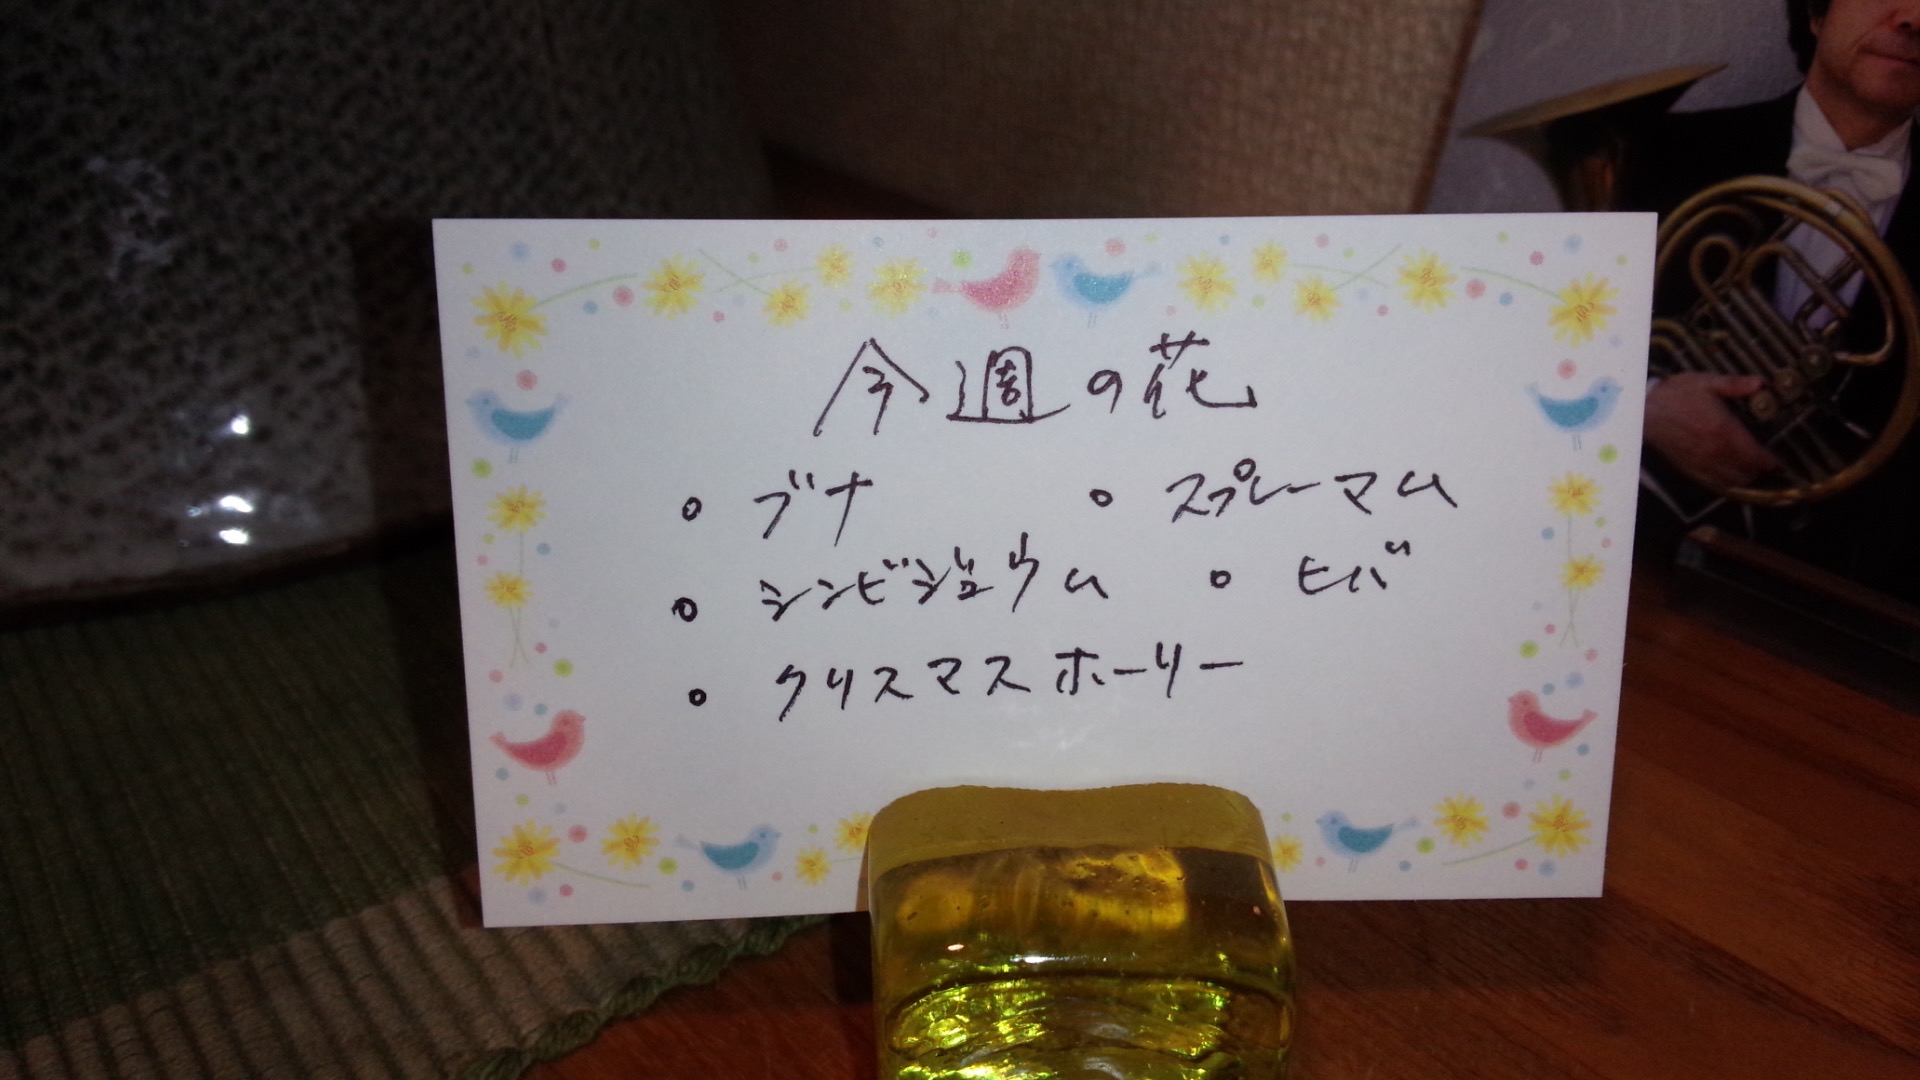 今週の花
◦ ブナ ◦ スプレーマム
◦ シンビジュウム ◦ ヒバ
◦ クリスマスホーリー